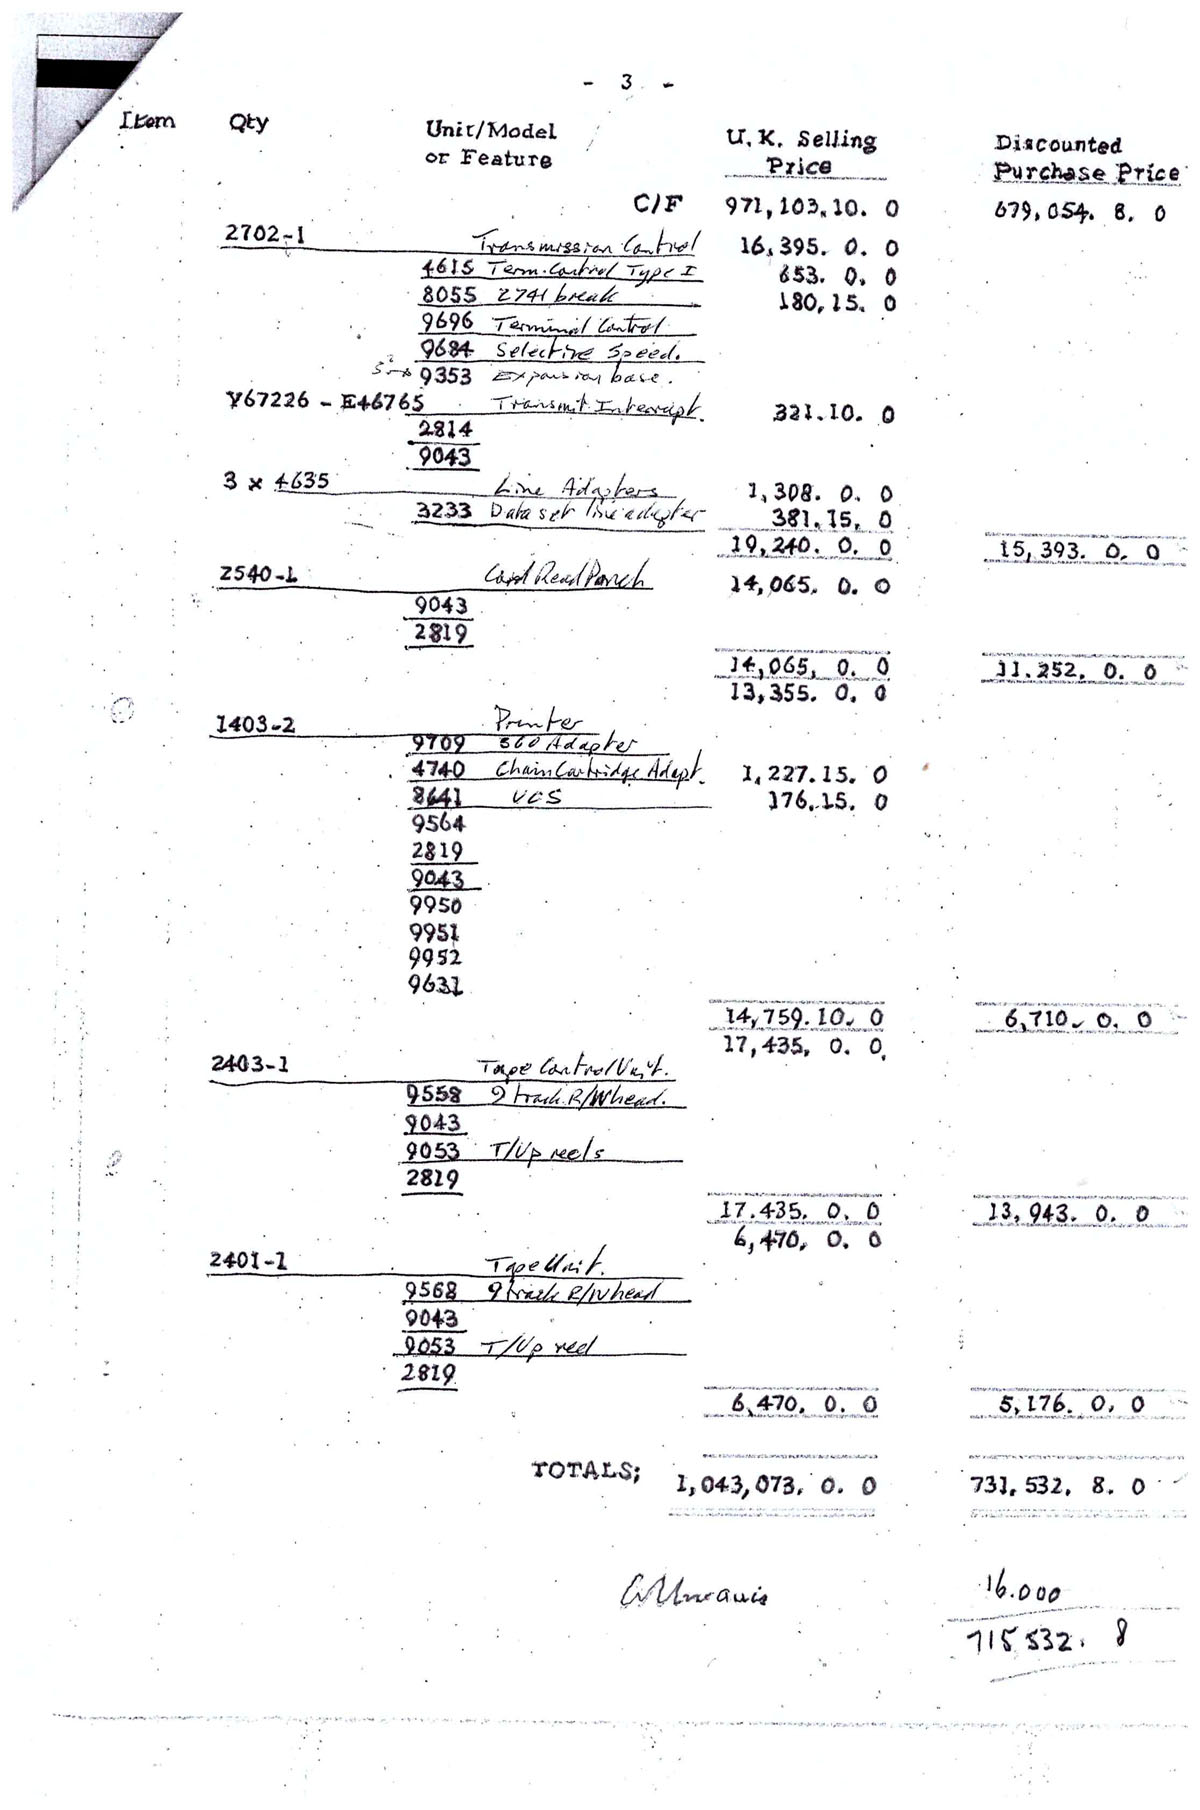 - 3 -
Item Qty Unit/Model U. K. Selling Discounted
or Feature Price Purchase Price
C/F 971,103.10. 0 679,054. 8. 0
2702-1 Transmission Control 16,395. 0. 0
4615 Term. Control Type I 653. 0. 0
8055 2741 break 180,15. 0
9696 Terminal Control
9684 Selective Speed.
9353 Expansion base.
Y67226 - E46765 Transmit Interrupt. 321.10. 0
2814
9043
3 x 4635 Line Adapters 1,308. 0. 0
3233 Data set line adapter 381.15. 0
19,240. 0. 0 15,393. 0. 0
2540-1 Card Read Punch 14,065. 0. 0
9043
2819
14,065, 0. 0 11.252. 0. 0
13,355. 0. 0
1403-2 Printer
9709 360 Adapter
4740 Chain Cartridge Adapt. 1,227.15. 0
8641 UCS 176.15. 0
9564
2819
9043
9950
9951
9952
9631
14,759.10. 0 6,710. 0. 0
17,435, 0. 0
2403-1 Tape Control Unit.
9558 9 track R/W head.
9043
9053 T/Up reels
2819
17.435. 0. 0 13,943. 0. 0
6,470, 0. 0
2401-1 Tape Unit.
9568 9 track R/W head
9043
9053 T/Up reel
2819
6,470. 0. 0 5,176. 0. 0
TOTALS; 1,043,073. 0. 0 731,532. 8. 0
16.000
715 532. 8